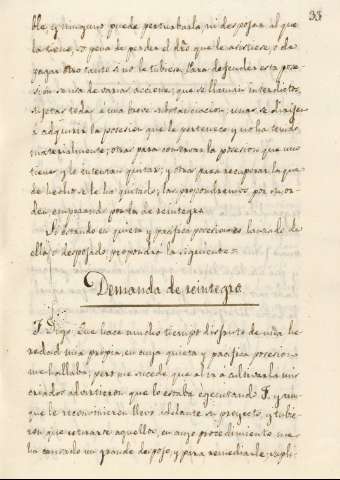 33
ble, y ninguno puede perturbarla, ni despojar al que
la tiene, so pena de perder el dro. que le asistiese, o de
pagar otro tanto si no le tubiera. Para defender esta pose-
sion se usa de varias acciones, que se llaman interdictos,
sujetas todas á una breve substanciacion; unas se dirigen
á adquirir la posesion que le pertenece y no ha tenido
materialmente; otras para conservar la posesion que uno
tiene y le intentan quitar; y otras para recuperar la que
de hecho se le ha quitado; las propondremos por su or-
den empezando por la de reintegro.
Si estando en quieta y pacifica posesion es lanzado de
ella o despojado, propondrá la siguiente =
Demanda de reintegro.
F. Digo: Que hace mucho tiempo disfruto de una he-
redad mia propia, en cuya quieta y pacifica posesion
me hallaba; pero me sucede que al ir a cultivarla mis
criados advirtieron que lo estaba ejecutando F. y aun-
que le reconvinieron llevó adelante su proyecto, y tubie-
ron que retirarse aquellos, en cuyo procedimiento me
ha causado un grande despojo, y para remediarle, supli-